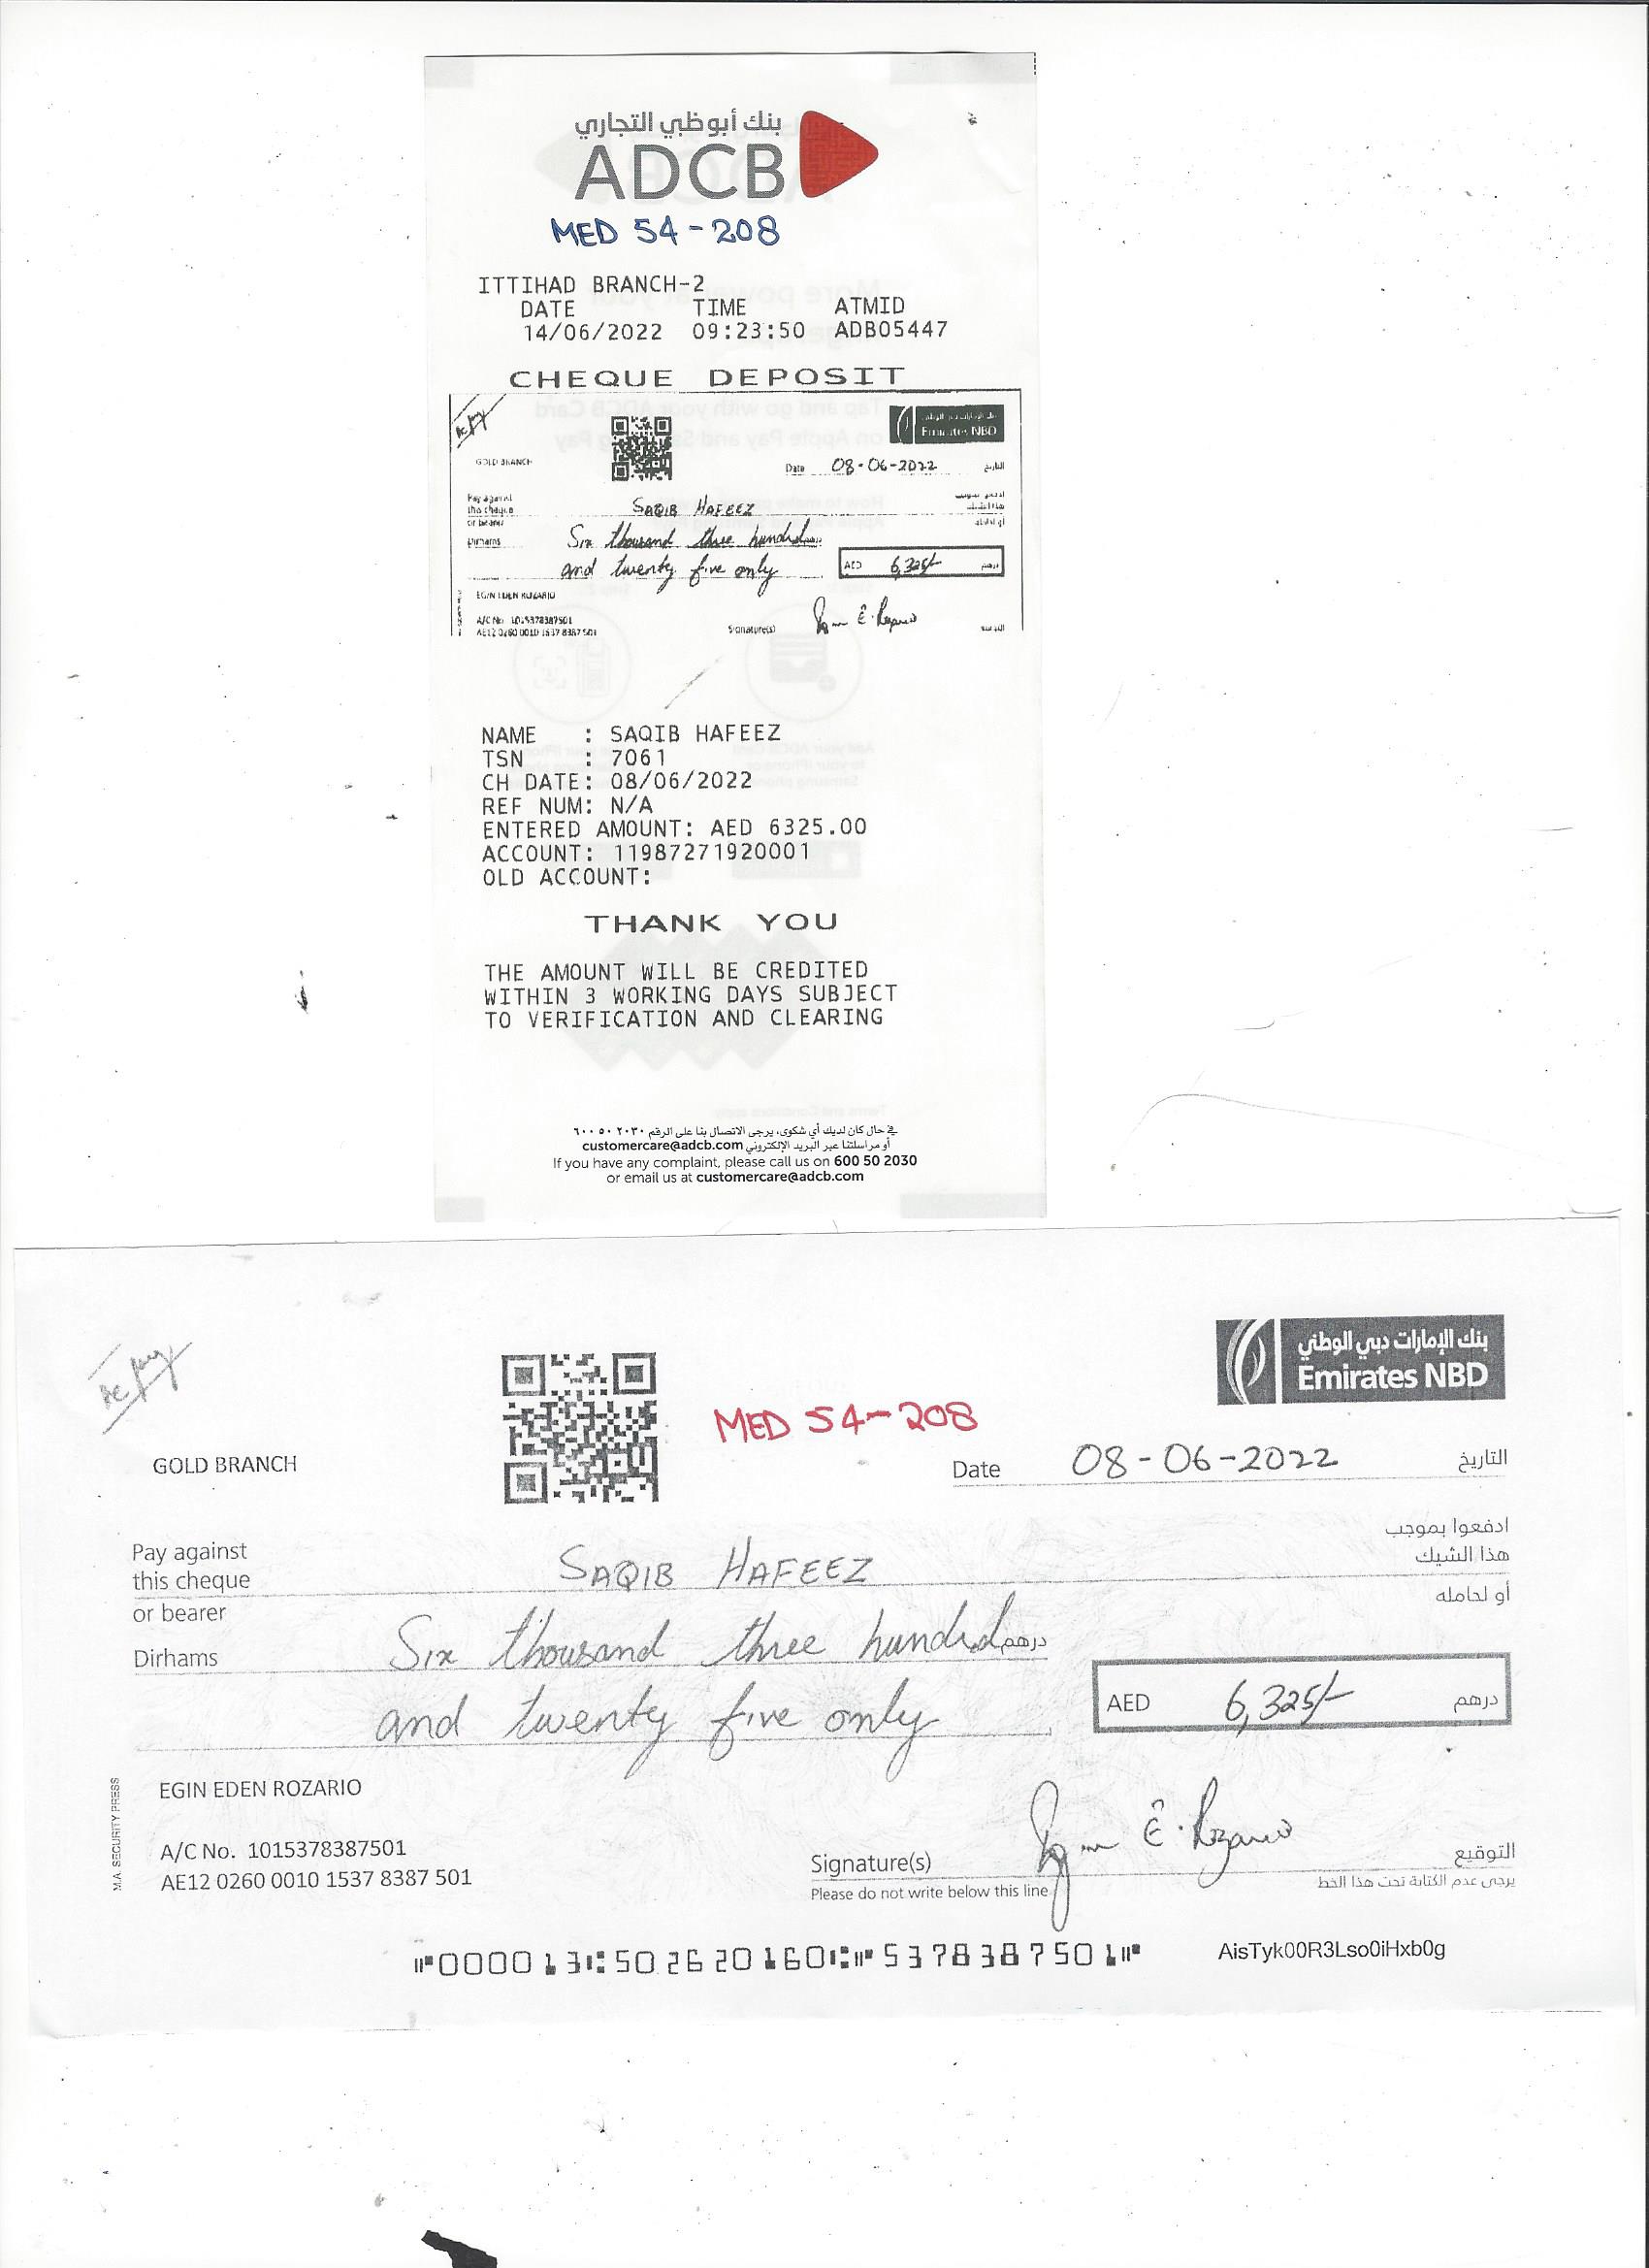 بنك أبوظبي التجاري
ADCB
MED 54-208
ITTIHAD BRANCH-2
DATE TIME ATMID
14/06/2022 09:23:50 ADB05447
CHEQUE DEPOSIT
Emirates NBD
GOLD BRANCH
Date 08-06-2022 التاريخ
Pay against
this cheque
or bearer
SAQIB HAFEEZ
Dirhams Six thousand three hundred
and twenty five only
AED 6,325/- درهم
EGIN EDEN ROZARIO
A/C No. 1015378387501
AE12 0260 0010 1537 8387 501
Signature(s)
NAME : SAQIB HAFEEZ
TSN : 7061
CH DATE: 08/06/2022
REF NUM: N/A
ENTERED AMOUNT: AED 6325.00
ACCOUNT: 11987271920001
OLD ACCOUNT:
THANK YOU
THE AMOUNT WILL BE CREDITED
WITHIN 3 WORKING DAYS SUBJECT
TO VERIFICATION AND CLEARING
في حال كان لديك أي شكوى، يرجى الاتصال بنا على الرقم ٦٠٠ ٥٠ ٢٠٣٠
أو مراسلتنا عبر البريد الإلكتروني customercare@adcb.com
If you have any complaint, please call us on 600 50 2030
or email us at customercare@adcb.com
بنك الإمارات دبي الوطني
Emirates NBD
MED 54-208
GOLD BRANCH
Date 08-06-2022 التاريخ
Pay against ادفعوا بموجب
this cheque SAQIB HAFEEZ هذا الشيك
or bearer أو لحامله
Dirhams Six thousand three hundred درهم
and twenty five only
AED 6,325/- درهم
M.A. SECURITY PRESS
EGIN EDEN ROZARIO
A/C No. 1015378387501
AE12 0260 0010 1537 8387 501
Signature(s) E. Rozario التوقيع
Please do not write below this line يرجى عدم الكتابة تحت هذا الخط
⑈000013⑆502620160⑆⑈5378387501⑈ AisTyk00R3Lso0iHxb0g